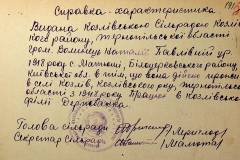 Справка-характеристика
Видана Козлівською Сільрадою Козлів
ського району, Тернопільської області
гром. Наталії Павлівній ур.
1918 року с. Матюші, Білоцерківського району,
Київської обл. в тім, що вона дійсно прожи
в селі Козлів, Козлівського р-ну, Тернопільсь
області з 1948 року. Працює в Козлівсько
філії Держбанка.
Голова сільради
Секретар Сільради